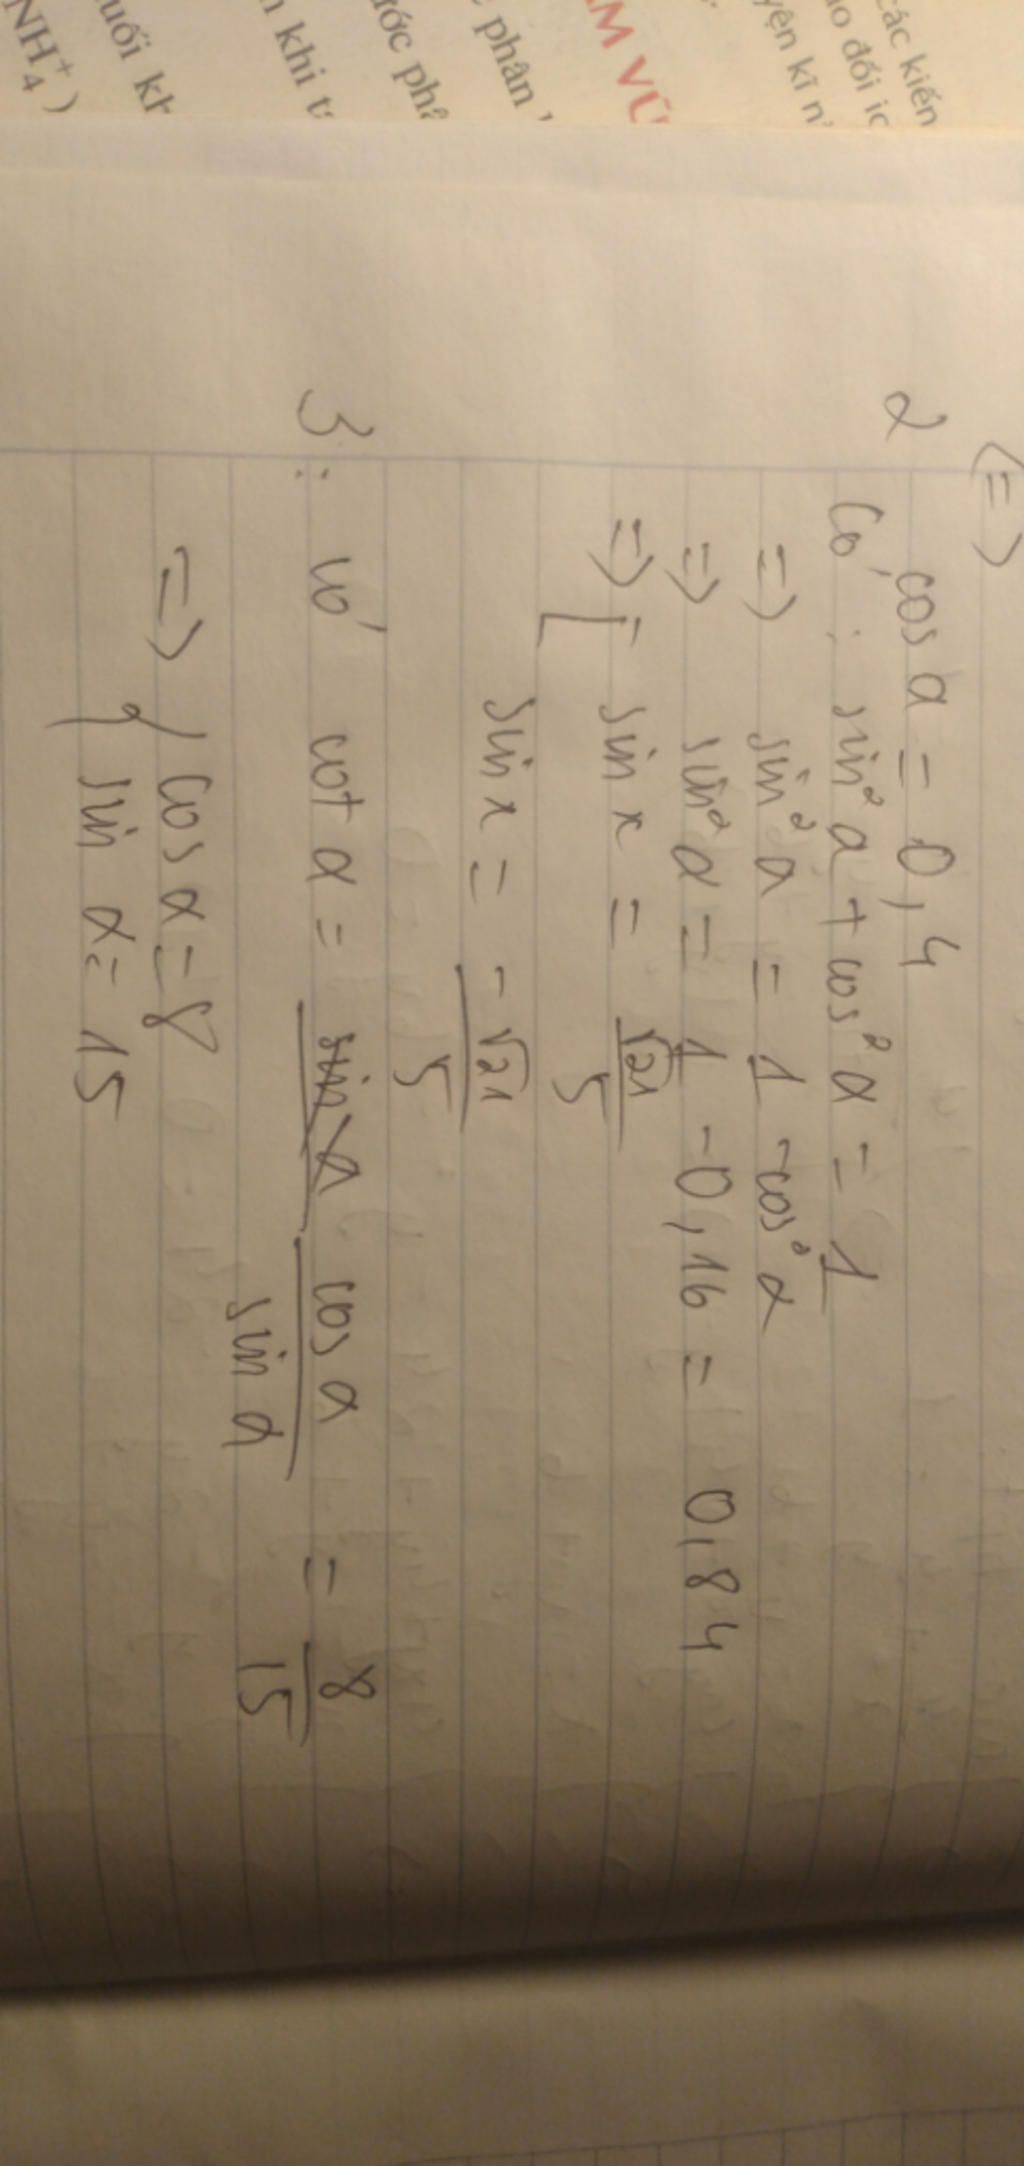 các kiến
ao đổi ic
yện kĩ n
ÂM VŨ
phân
ước phâ
khi t
uối kh
NH₄⁺)
<=>
2 cos α = 0,4
Có : sin² α + cos² α = 1
=> sin² α = 1 - cos² α
=> sin² α = 1 - 0,16 = 0,84
=> [ sin x = √21/5
sin x = -√21/5
3: có cot α = cos α / sin α = 8/15
=> { cos α = 8
sin α = 15